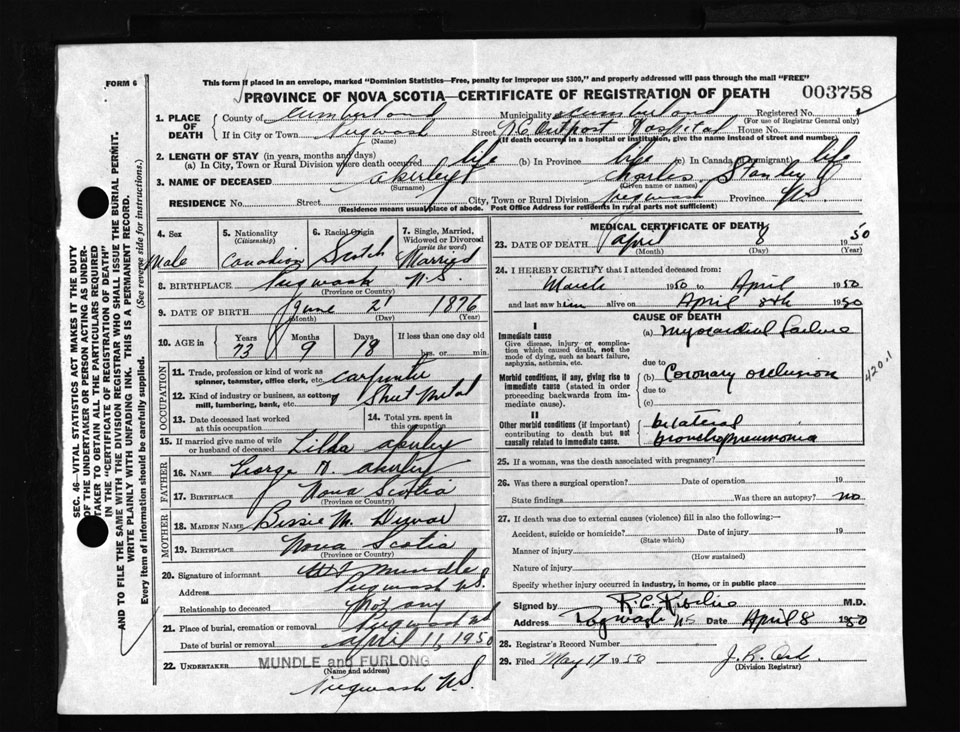 FORM 6
This form if placed in an envelope, marked "Dominion Statistics—Free, penalty for improper use $300," and properly addressed will pass through the mail "FREE"
PROVINCE OF NOVA SCOTIA—CERTIFICATE OF REGISTRATION OF DEATH 003758
SEC. 46—VITAL STATISTICS ACT MAKES IT THE DUTY
OF THE UNDERTAKER OR PERSON ACTING AS UNDER-
TAKER TO OBTAIN ALL THE PARTICULARS REQUIRED
IN THE "CERTIFICATE OF REGISTRATION OF DEATH"
AND TO FILE THE SAME WITH THE DIVISION REGISTRAR WHO SHALL ISSUE THE BURIAL PERMIT.
WRITE PLAINLY WITH UNFADING INK. THIS IS A PERMANENT RECORD.
Every item of information should be carefully supplied. (See reverse side for instructions.)
1. PLACE OF DEATH County of Cumberland Municipality Cumberland Registered No.
(For use of Registrar General only)
If in City or Town Pugwash Street R.C. Outpost Hospital House No.
(Name) (If death occurred in a hospital or institution, give the name instead of street and number)
2. LENGTH OF STAY (in years, months and days)
(a) In City, Town or Rural Division where death occurred life (b) In Province life (c) In Canada (if immigrant) life
3. NAME OF DECEASED Akerley Charles Stanley
(Surname) (Given name or names)
RESIDENCE No. Street City, Town or Rural Division Pugwash Province N.S.
(Residence means usual place of abode. Post Office Address for residents in rural parts not sufficient)
4. Sex 5. Nationality (Citizenship) 6. Racial Origin 7. Single, Married, Widowed or Divorced (write the word)
Male Canadian Scotch Married
8. BIRTHPLACE Pugwash N.S.
(Province or Country)
9. DATE OF BIRTH June 2 1876
(Month) (Day) (Year)
10. AGE in Years Months Days If less than one day
73 9 18 hrs. or min.
OCCUPATION
11. Trade, profession or kind of work as spinner, teamster, office clerk, etc. Carpenter
12. Kind of industry or business, as cotton mill, lumbering, bank, etc. Sheet Metal
13. Date deceased last worked at this occupation
14. Total yrs. spent in this occupation
15. If married give name of wife or husband of deceased Lilda Akerley
FATHER
16. NAME George N. Akerley
17. BIRTHPLACE Nova Scotia
(Province or Country)
MOTHER
18. MAIDEN NAME Bessie M.
19. BIRTHPLACE Nova Scotia
(Province or Country)
20. Signature of informant Mundle
Address Pugwash N.S.
Relationship to deceased Not any
21. Place of burial, cremation or removal Pugwash N.S.
Date of burial or removal April 11, 1950
22. UNDERTAKER MUNDLE and FURLONG
(Name and address)
Pugwash N.S.
MEDICAL CERTIFICATE OF DEATH
23. DATE OF DEATH April 8 1950
(Month) (Day) (Year)
24. I HEREBY CERTIFY that I attended deceased from:
March 1950 to April 1950
and last saw him alive on April 8th 1950
CAUSE OF DEATH
I
Immediate cause
Give disease, injury or complication which caused death, not the mode of dying, such as heart failure, asphyxia, asthenia, etc.
(a) Myocardial failure
due to
Morbid conditions, if any, giving rise to immediate cause (stated in order proceeding backwards from immediate cause).
(b) Coronary occlusion
due to
(c)
420.1
II
Other morbid conditions (if important) contributing to death but not causally related to immediate cause.
bilateral
bronchopneumonia
25. If a woman, was the death associated with pregnancy?
26. Was there a surgical operation? Date of operation 19
State findings Was there an autopsy? no
27. If death was due to external causes (violence) fill in also the following:—
Accident, suicide or homicide? Date of injury 19
(State which)
Manner of injury
(How sustained)
Nature of injury
Specify whether injury occurred in industry, in home, or in public place
Signed by R.C. M.D.
Address Pugwash NS Date April 8 1950
28. Registrar's Record Number
29. Filed May 17 1950 J. R.
(Division Registrar)